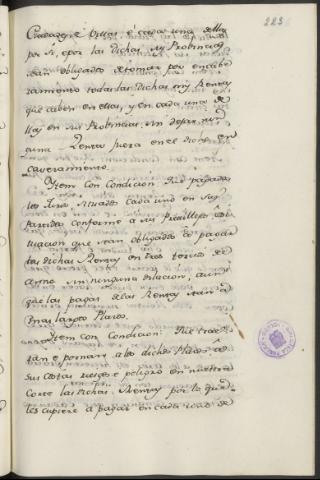 223
Ciudades, é Villas, é cada una dellas
por sí, é por las dichas sus Provincias
sean obligados de tomar por encabe-
zamiento todas las dichas mis Rentas
que caben en ellas, y en cada una de
llas en sus Provincias, sin dejar nin
guna Renta fuera en el dicho en
cavezamiento.
Item con Condicion que pagadas
los situados cada uno en sus
partidos conforme a sus
situacion que sean obligados á pagar
las dichas Rentas en tres tercios de
cada sin ninguna dilacion, aunq
que las pagas de las Rentas sean á
mas largos Plazos.
Item con Condicion: que trae-
ran é pornan a los dichos Plazos á
sus costas riesgo é peligro en nuestra
Corte las dichas Rentas por lo que
les cupiere á pagar en cada uno de